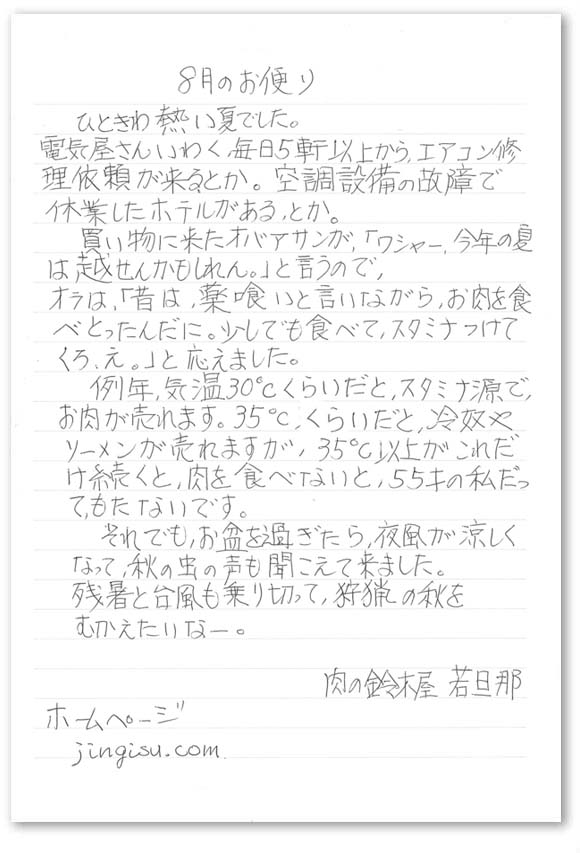 8月のお便り
ひときわ熱い夏でした。
電気屋さんいわく、毎日5軒以上から、エアコン修
理依頼が来るとか。空調設備の故障で
休業したホテルがある、とか。
買い物に来たオバアサンが、「ワシャー、今年の夏
は越せんかもしれん。」と言うので、
オラは、「昔は、薬喰いと言いながら、お肉を食
べとったんだに。少しでも食べて、スタミナつけて
くろ、え。」と応えました。
例年、気温30℃くらいだと、スタミナ源で、
お肉が売れます。35℃、くらいだと、冷奴や
ソーメンが売れますが、35℃以上がこれだ
け続くと、肉を食べないと、55才の私だっ
て、もたないです。
それでも、お盆を過ぎたら、夜風が涼しく
なって、秋の虫の声も聞こえて来ました。
残暑と台風も乗り切って、狩猟の秋を
むかえたいなー。
肉の鈴木屋 若旦那
ホームページ
jingisu.com.